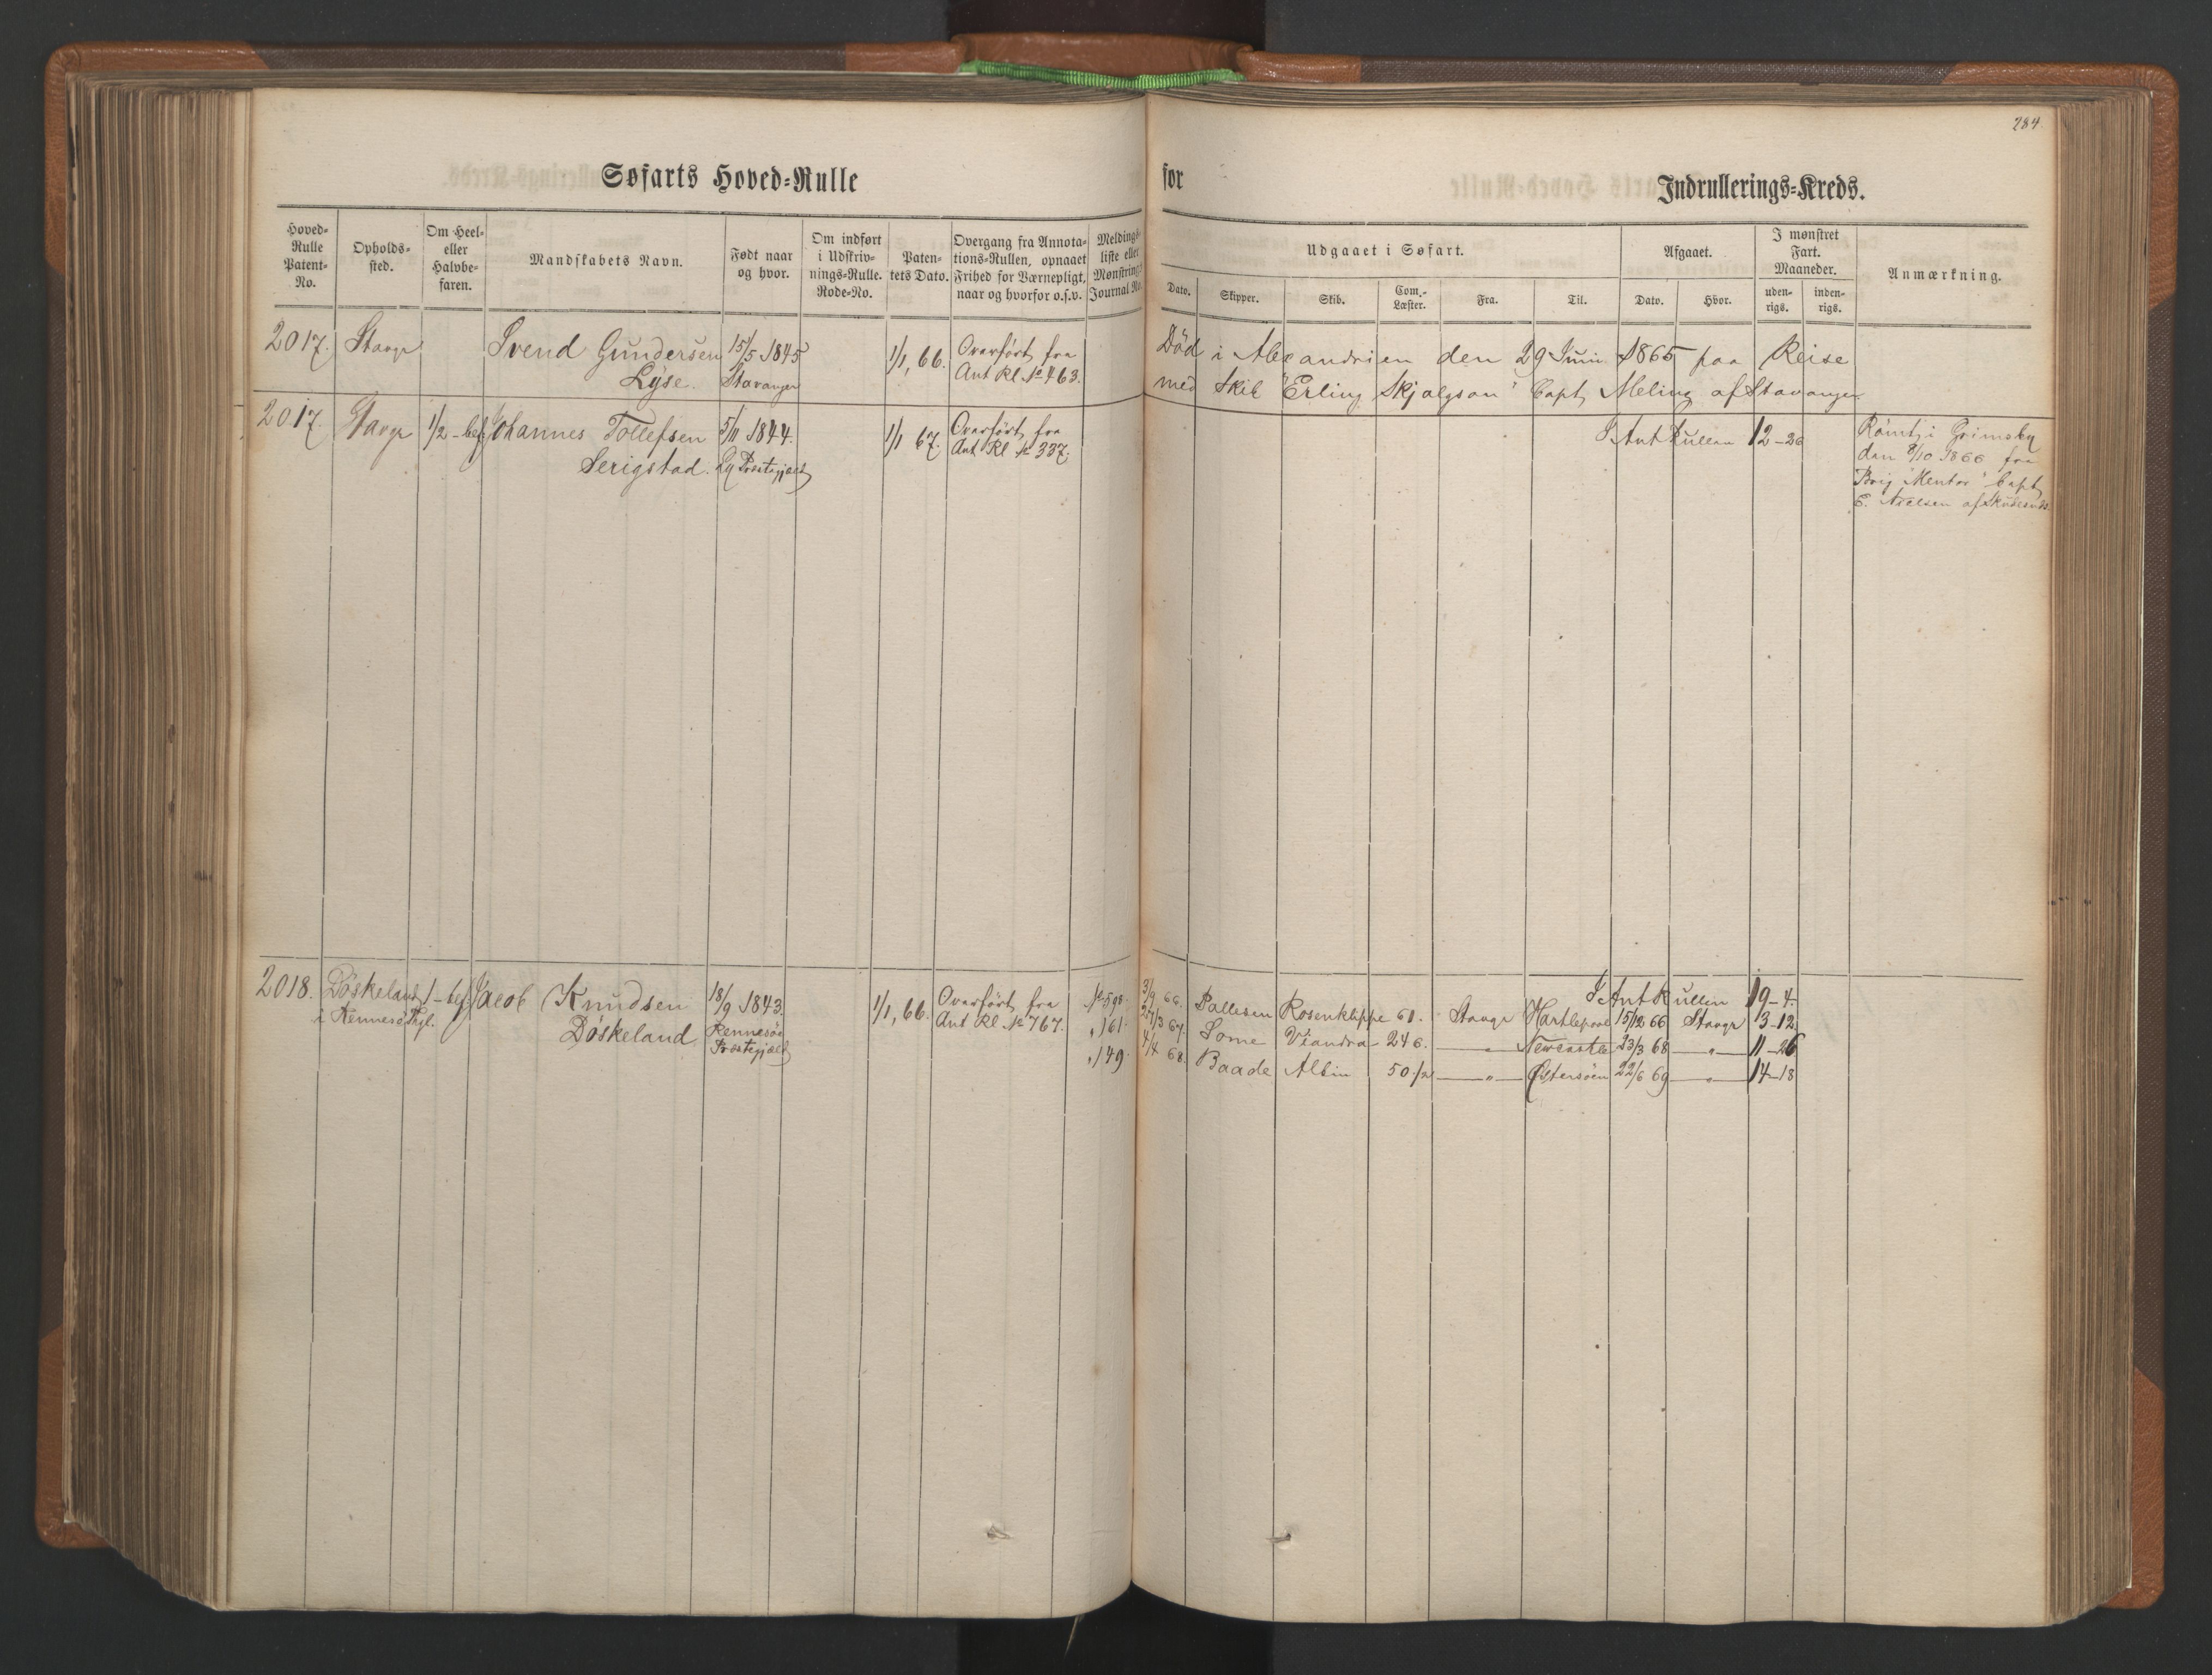 284.
Søfarts Hoved-Rulle
for
Indrullerings-Kreds.
Hoved-Rulle Patent-No.
Opholds-sted.
Om Heel- eller Halvbe-faren.
Mandskabets Navn.
Født naar og hvor.
Om indført i Udskriv-nings-Rulle. Rode-No.
Paten-tets Dato.
Overgang fra Annota-tions-Rullen, opnaaet Frihed for Værnepligt, naar og hvorfor o.s.v.
Meldings-liste eller Mønstrings Journal No.
Udgaaet i Søfart.
Dato.
Skipper.
Skib.
Com.-Læster.
Fra.
Til.
Afgaaet.
Dato.
Hvor.
I mønstret Fart. Maaneder.
uden-rigs.
inden-rigs.
Anmærkning.
2017. Stavgr Svend Gundersen 15/5 1845 1/1, 66. Overført fra
Lyse. Stavanger Ant Rl. No 463.
Død i Alexandrien den 29 Juni 1865 paa Reise
med Skib "Erling Skjalgson" Capt Meling af Stavanger
2017. Stavgr 1/2-bef Johannes Tollefsen 5/11 1844. 1/1 67. Overført fra
Serigstad. Ly Præstegjæld Ant Rl No 337.
I Ant Rullen 12-26
Rømt i Grimsby
den 8/10 1866 fra
Brig "Mentor" Capt
E. Nielsen af Skudesnds
2018. Døskeland 1-bef. Jacob Knudsen 18/9 1843. 1/1, 66. Overført fra No 598.
i Rennesø Pgl. Døskeland Rennesøe Ant Rl No 767. " 161.
Præstegjæld " 149.
I Ant Rullen 19-4.
3/9 66. Pallesen Rosenklippe 61. Stavgr Hartlepool 15/12 66 Stavgr 3-12.
27/3 67. Lome Viandra 246. " Newcastle 23/3 68 " 11-26
4/4 68. Baade Albin 50 1/2 " Østersøen 22/6 69 " 14-18